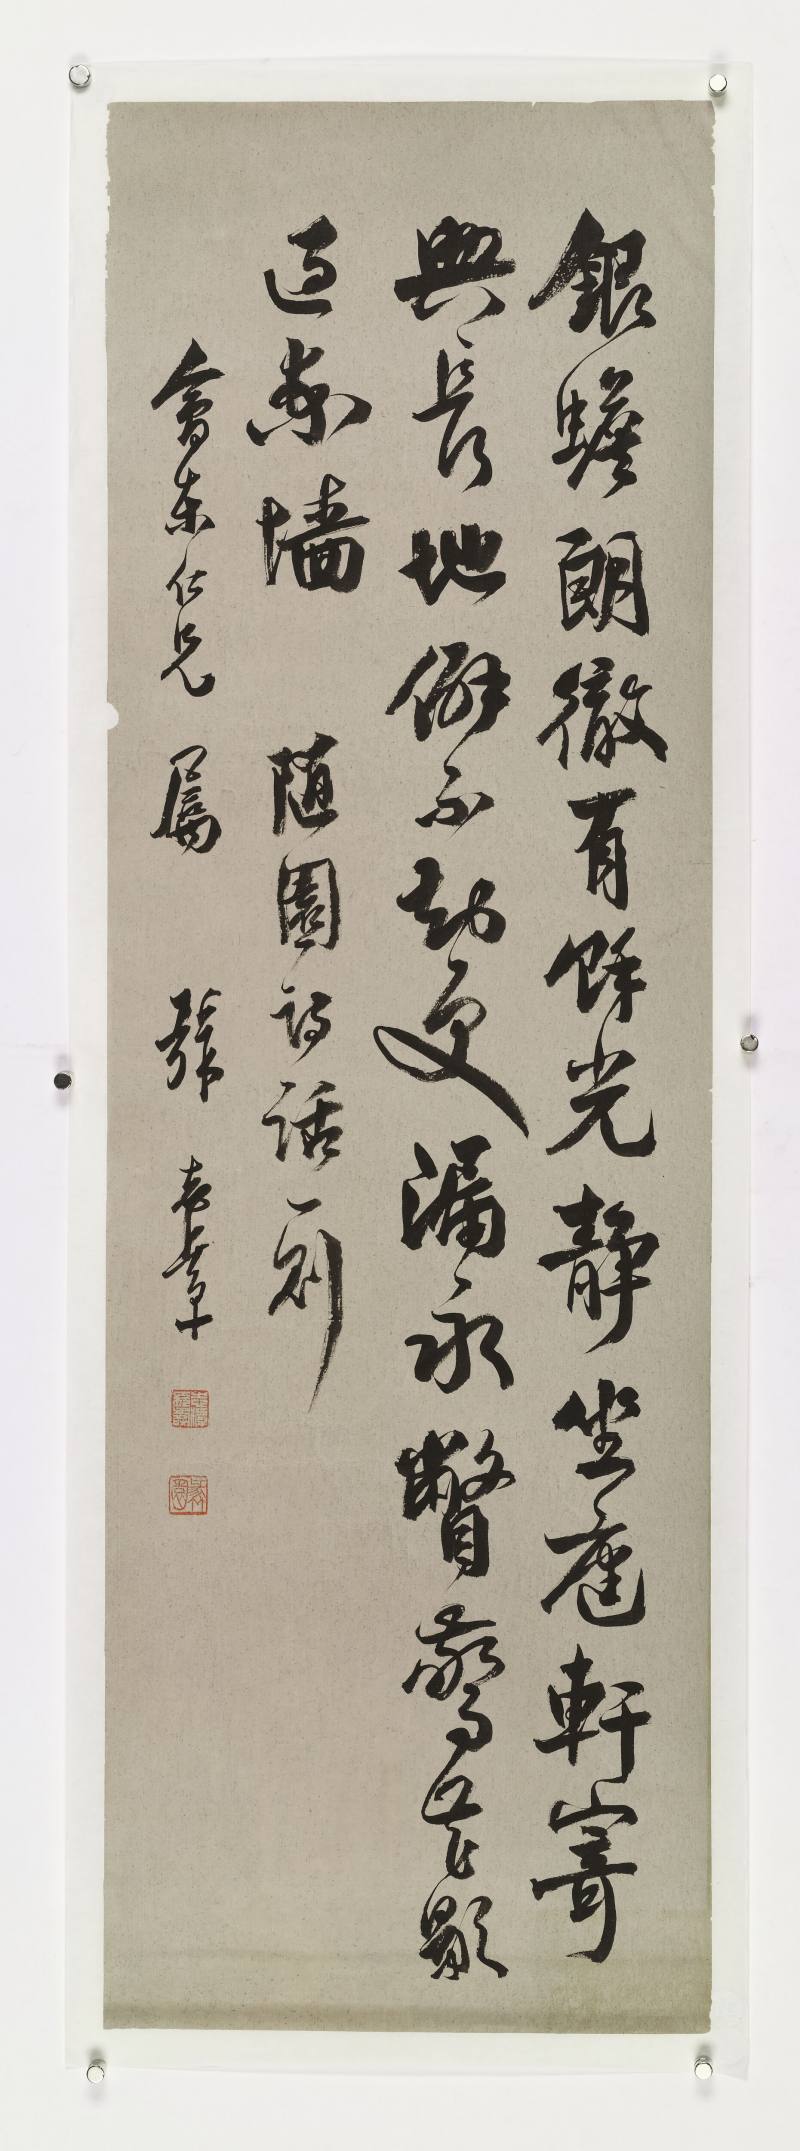 銀蟾朗徹有餘光靜坐虛軒寄
興長地僻不知更漏永瞥驚花影
過東墻 隨園詩話一則
會東仁兄 屬 張